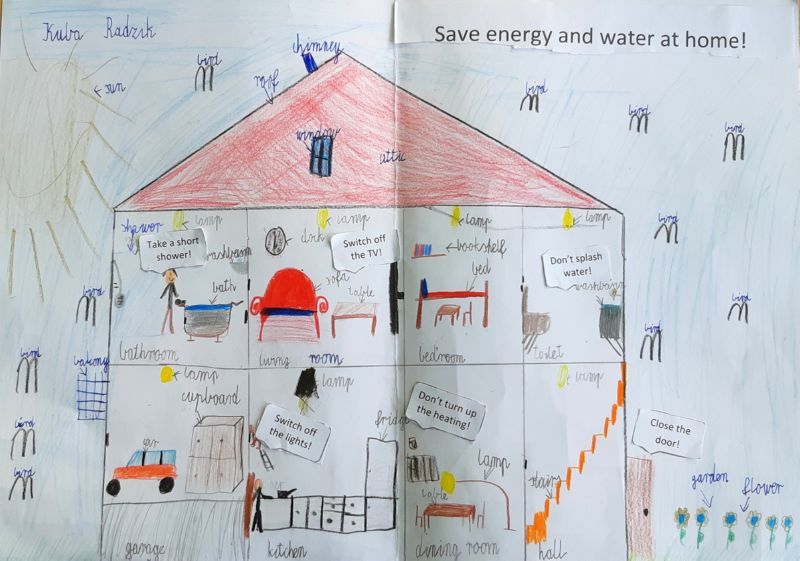 Kuba Radzik
Save energy and water at home!
chimney
bird
bird
roof
sun
bird
bird
window
attic
bird
shower
lamp
lamp
lamp
lamp
Take a short
shower!
washbasin
clock
Switch off
the TV!
bookshelf
bed
Don't splash
water!
washbasin
bath
sofa
table
bird
bird
bird
bathroom
living room
bedroom
toilet
bird
balcony
lamp
lamp
lamp
cupboard
Switch off
the lights!
fridge
Don't turn up
the heating!
Close the
door!
bird
car
lamp
bird
table
stairs
garden
flower
garage
kitchen
dining room
hall